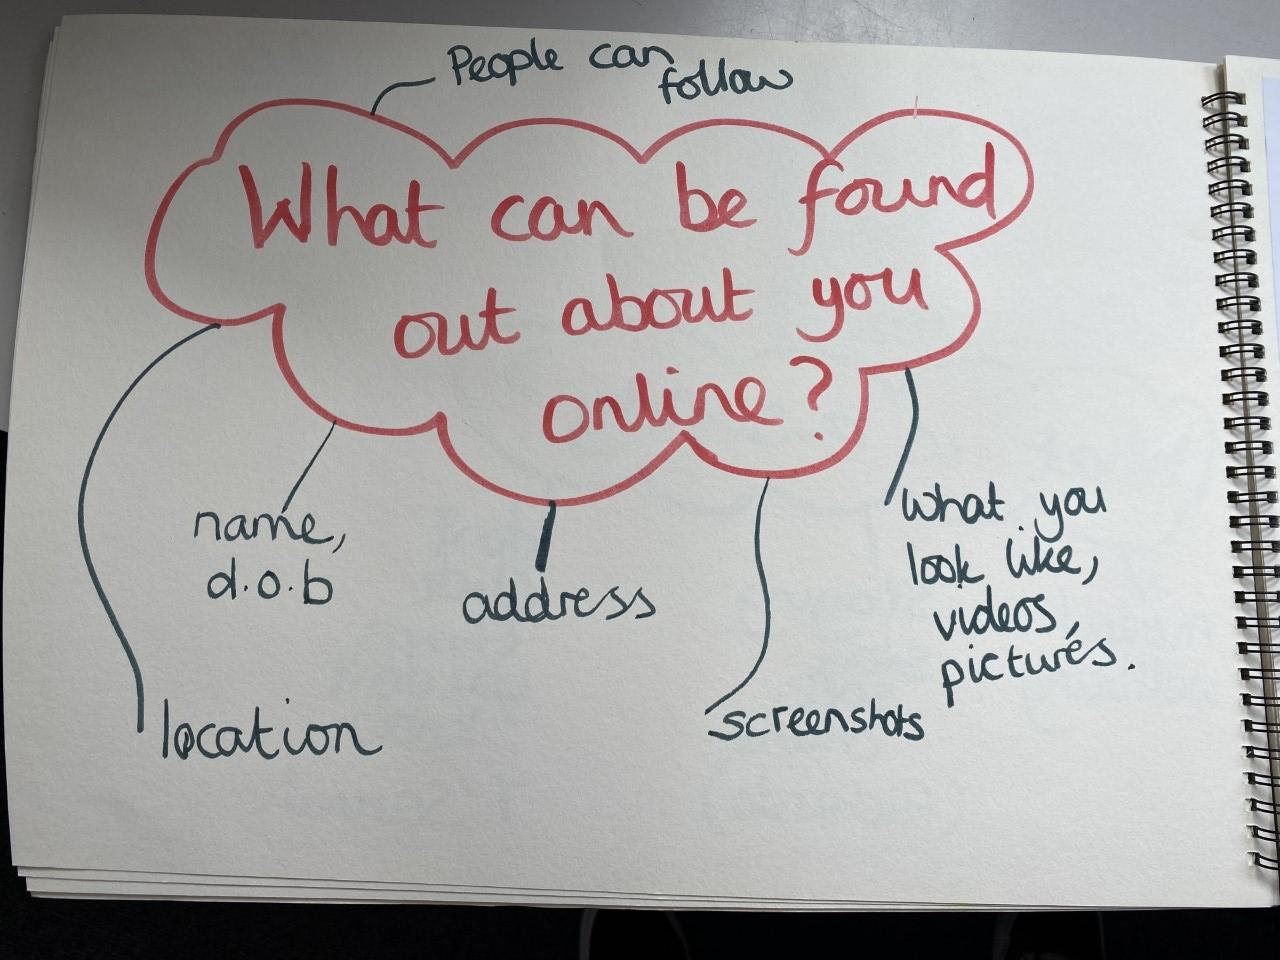 People can
follow
What can be found
out about you
online?
name,
d.o.b
address
what you
look like,
videos,
pictures.
location
screenshots